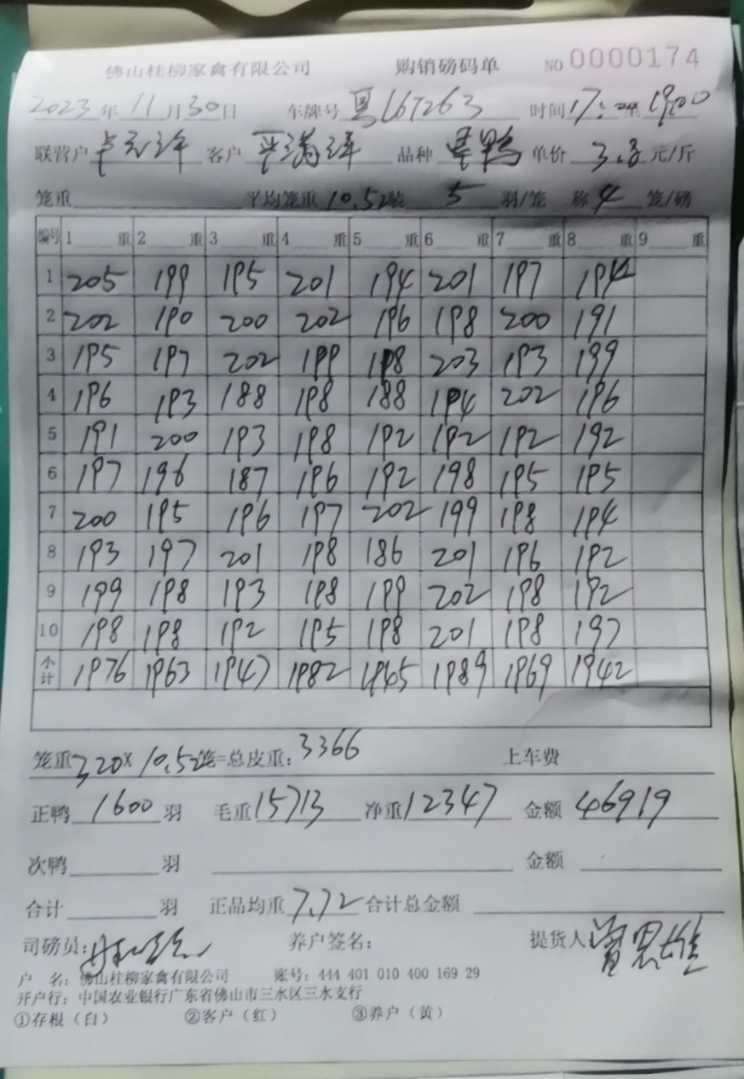 佛山桂柳家禽有限公司 购销磅码单 NO 0000174
2023年11月30日 车牌号 粤L67263 时间17:00至19:00
联营户 客户 品种 单价 3.8 元/斤
笼重 平均笼重 10.52 装 5 羽/笼 称 4 笼/磅
编号 1 重 2 重 3 重 4 重 5 重 6 重 7 重 8 重 9 重
1 205 199 195 201 194 201 197 194
2 202 190 200 202 196 198 200 191
3 195 197 202 199 198 203 193 199
4 196 193 188 198 188 194 202 196
5 191 200 193 198 192 192 192 192
6 197 196 187 196 192 198 195 195
7 200 195 196 197 202 199 198 194
8 193 197 201 198 186 201 196 192
9 199 198 193 198 199 202 198 192
10 198 198 192 195 198 201 198 197
小计 1976 1963 1947 1982 1945 1989 1969 1942
笼重320×10.52笼=总皮重:3366 上车费
正鸭 1600 羽 毛重15713 净重12347 金额 46919
次鸭 羽 金额
合计 羽 正品均重7.72 合计总金额
司磅员: 养户签名: 提货人
户 名: 佛山桂柳家禽有限公司 账号: 444 401 010 400 169 29
开户行: 中国农业银行广东省佛山市三水区三水支行
①存根（白） ②客户（红） ③养户（黄）